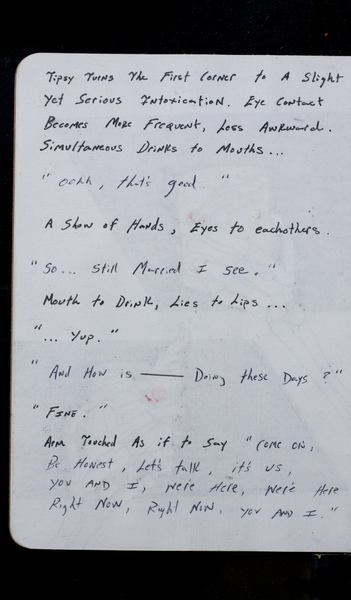 Tipsy Turns The First Corner to A Slight
Yet Serious Intoxication. Eye Contact
Becomes More Frequent, Less Awkward.
Simultaneous Drinks to Mouths...
"Oohh, that's good."
A Show of Hands, Eyes to eachothers.
"So... Still Married I See."
Mouth to Drink, Lies to Lips...
"... Yup."
"And How is —— Doing these Days?"
"Fine."
Arm Touched As if to Say "Come on,
Be Honest, Let's talk, it's us,
You AND I, We're Here, We're Here
Right Now, Right Now, You AND I."